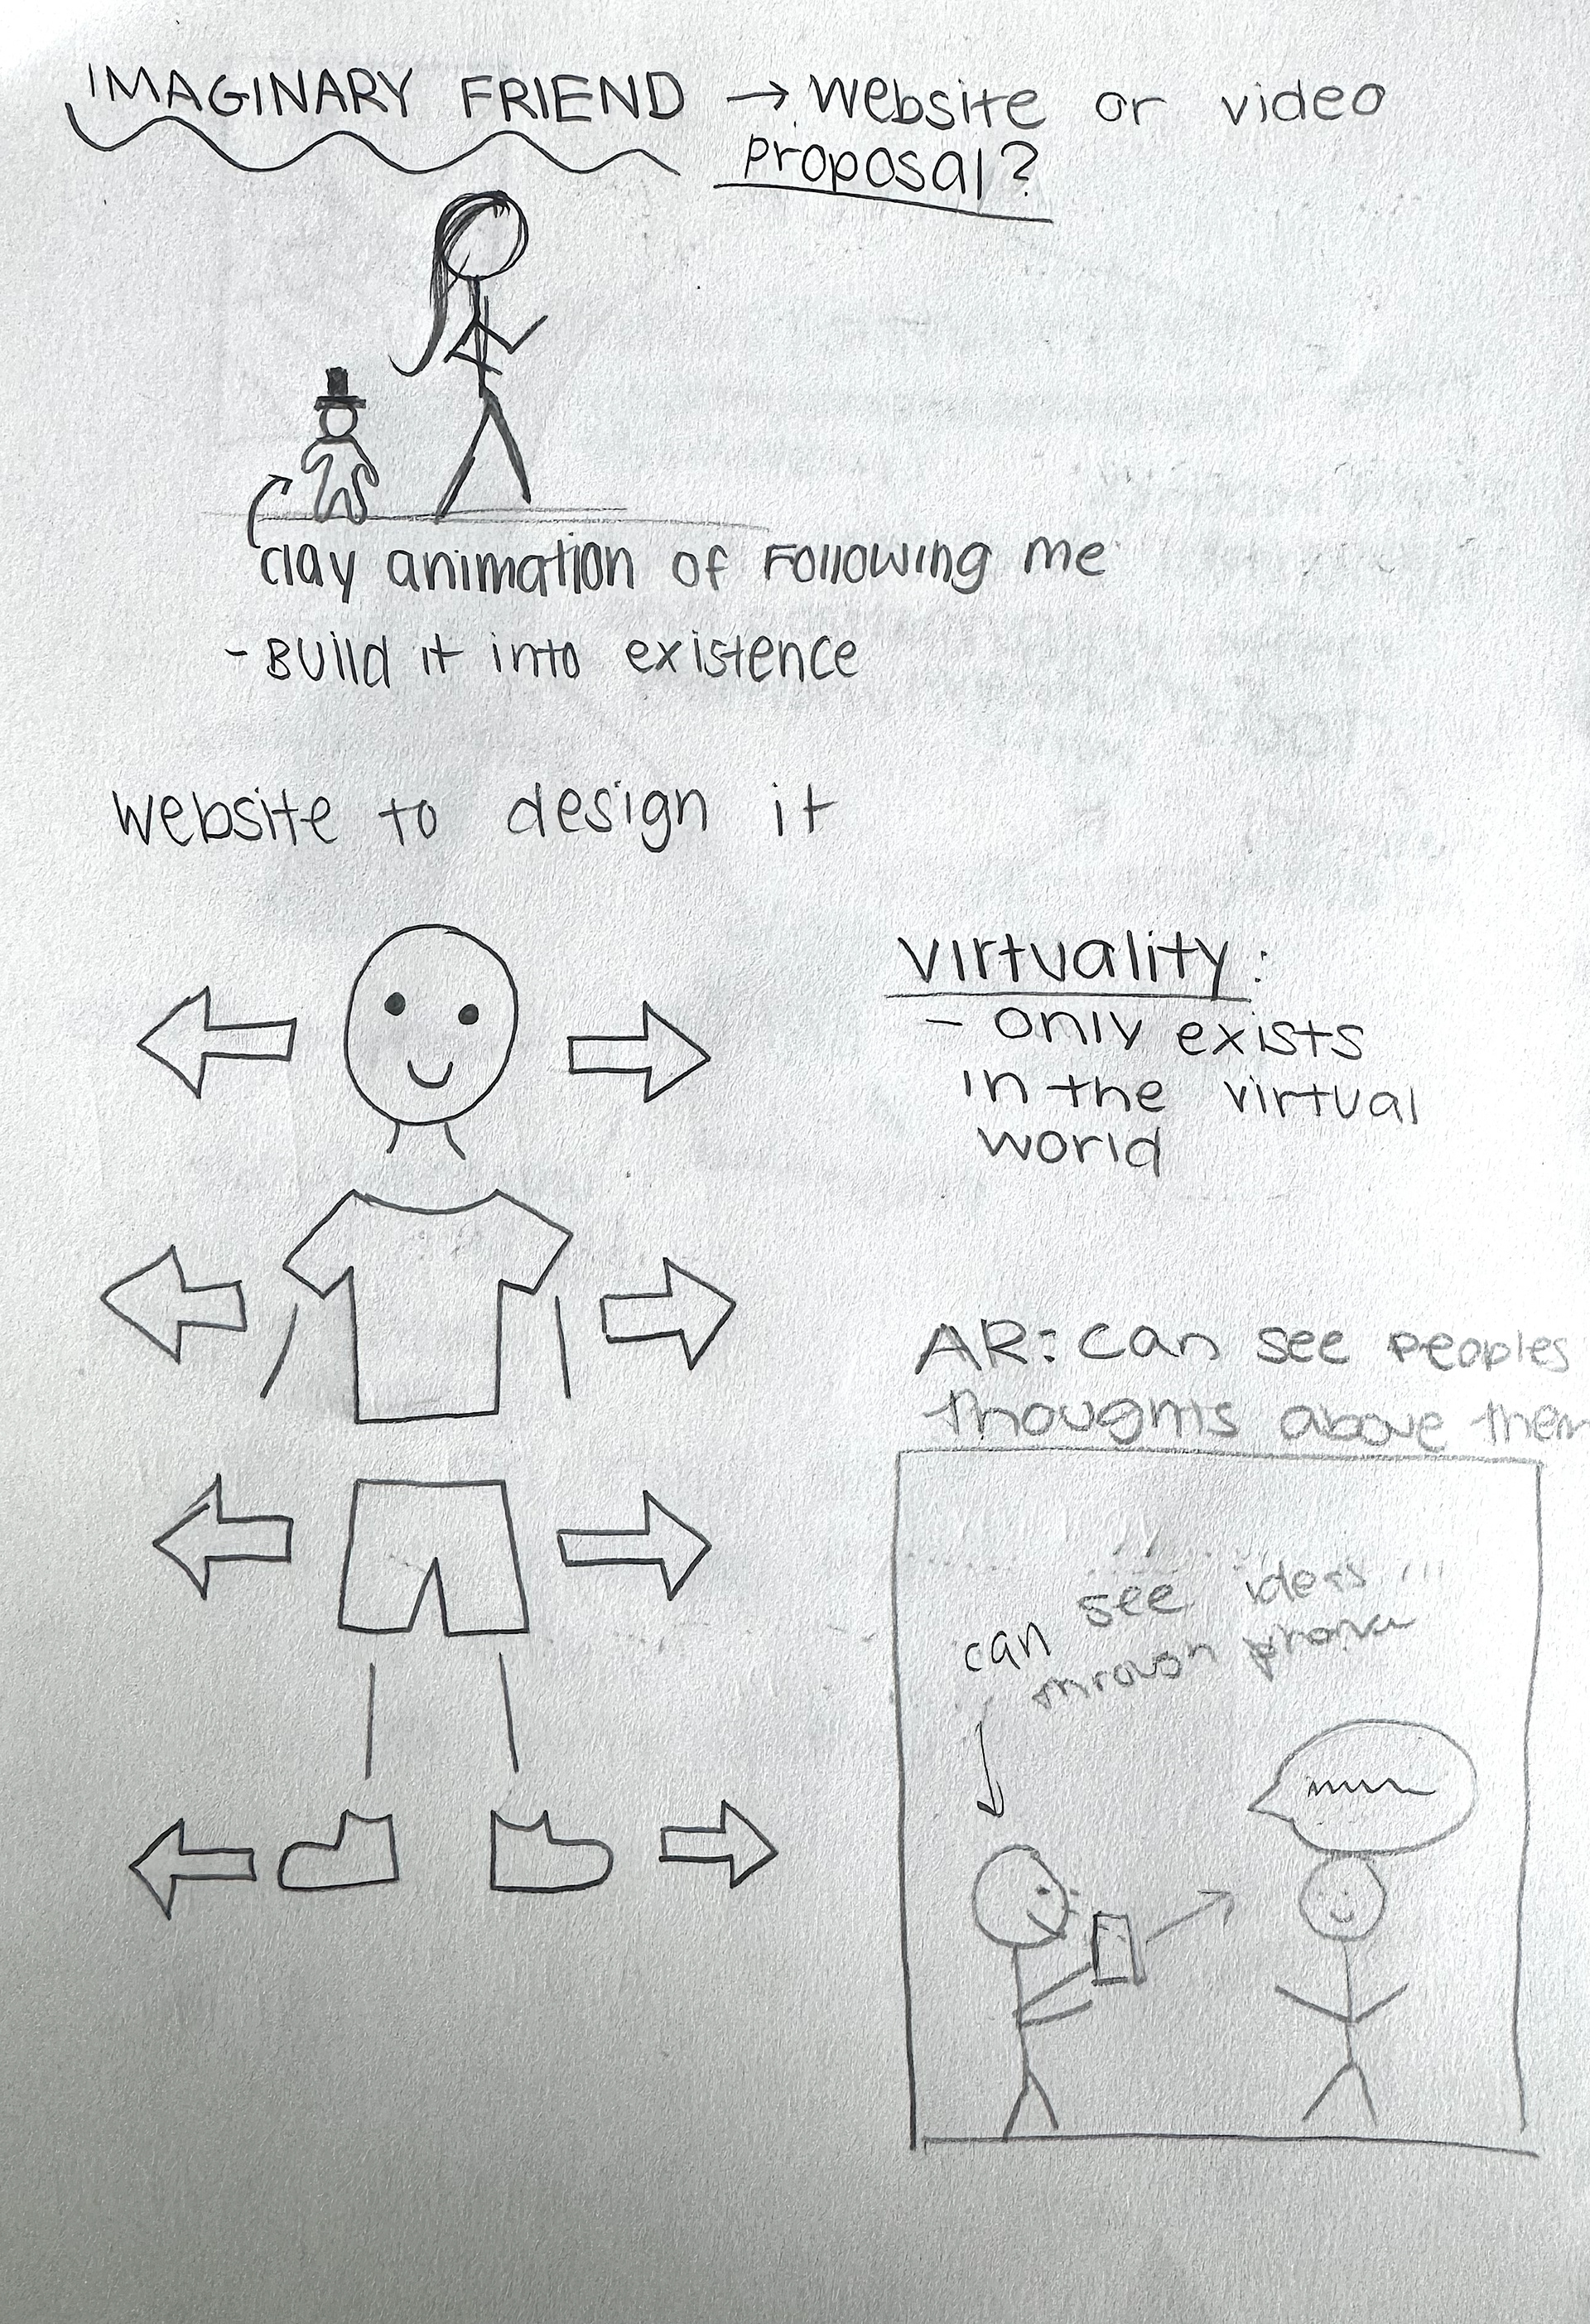 IMAGINARY FRIEND → website or video
proposal?
clay animation of Following me
- Build it into existence
website to design it
virtuality:
- only exists
in the virtual
world
AR: can see peoples
thoughts above them
can see ideas
through phone